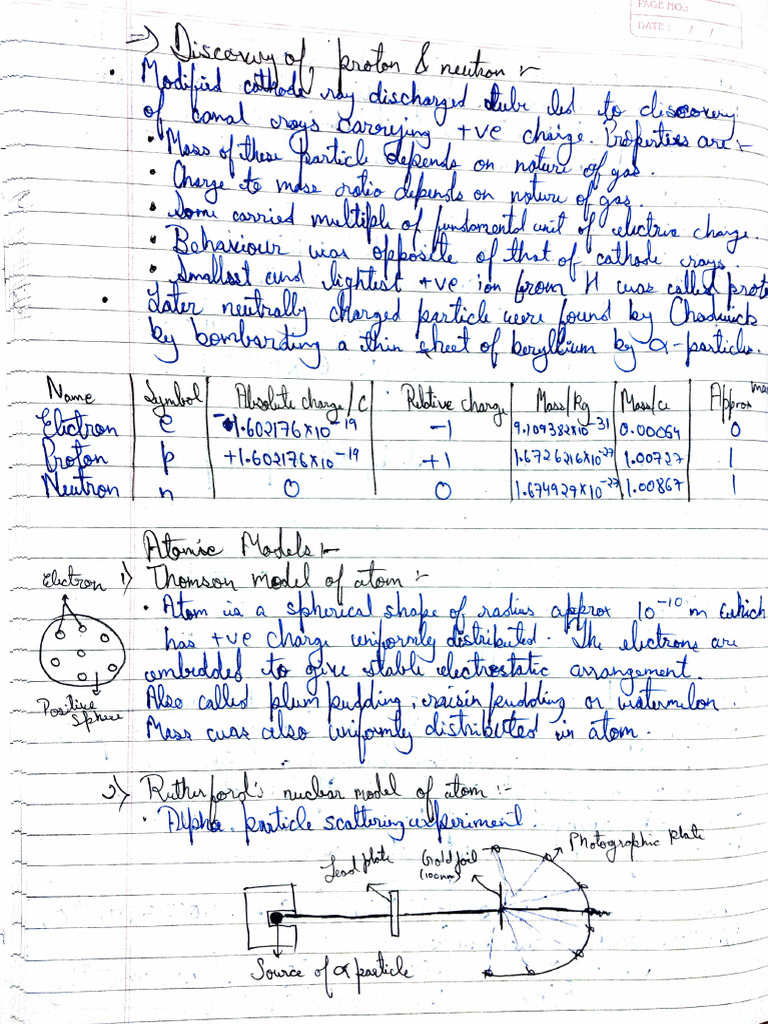 PAGE NO.:
DATE: / /
=> Discovery of proton & neutron :-
• Modified cathode ray discharged tube led to discovery
of canal rays carrying +ve charge. Properties are :-
• Mass of these particle depends on nature of gas.
• Charge to mass ratio depends on nature of gas.
• Some carried multiple of fundamental unit of electric charge.
• Behaviour was opposite of that of cathode rays
• Smallest and lightest +ve ion from H was called proto
• Later neutrally charged particle were found by Chadwick
by bombarding a thin sheet of beryllium by α-particles.
Name Symbol Absolute charge/C Relative charge Mass/Kg Mass/u Approx mas
Electron e -1.602176×10⁻¹⁹ -1 9.109382×10⁻³¹ 0.00054 0
Proton p +1.602176×10⁻¹⁹ +1 1.6726216×10⁻²⁷ 1.00727 1
Neutron n 0 0 1.674927×10⁻²⁷ 1.00867 1
Atomic Models :-
1) Thomson model of atom :-
Electron
• Atom is a spherical shape of radius approx 10⁻¹⁰ m which
has +ve charge uniformly distributed. The electrons are
embedded to give stable electrostatic arrangement.
Also called plum pudding, raisin pudding or watermelon.
Mass was also uniformly distributed in atom.
Positive
sphere
2) Rutherford's nuclear model of atom :-
• Alpha particle scattering experiment.
Lead plate
Gold foil
(100nm)
Photographic plate
Source of α particle